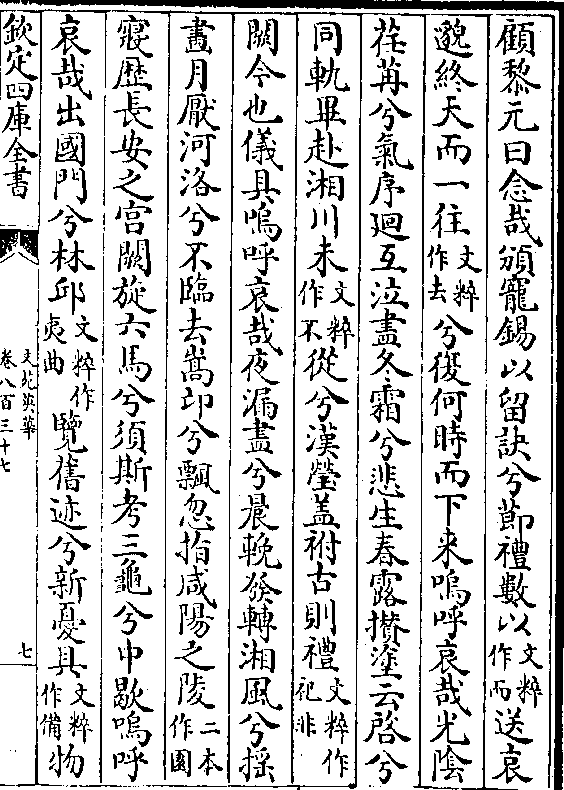 顧黎元曰念哉頒寵錫以留訣兮節禮數以文粹作而送哀
邈終天而一往文粹作去兮復何時而下来嗚呼哀哉光陰
荏苒兮氣序廻互泣盡冬霜兮悲生春露攅塗云啓兮
同軌畢赴湘川未文粹作不從兮漢塋盖祔古則禮文粹作祀非
闕今也儀具嗚呼哀哉夜漏盡兮晨輓發轉湘風兮揺
畫月厭河洛兮不臨去嵩卬兮飄忽指咸陽之陵二本作園
寢歴長安之宫闕旋六馬兮須斯考三龜兮中歇嗚呼
哀哉出國門兮林邱文粹作夷曲覽舊迹兮新憂具文粹作備物
欽定四庫全書
文苑英華
卷八百三十七
七